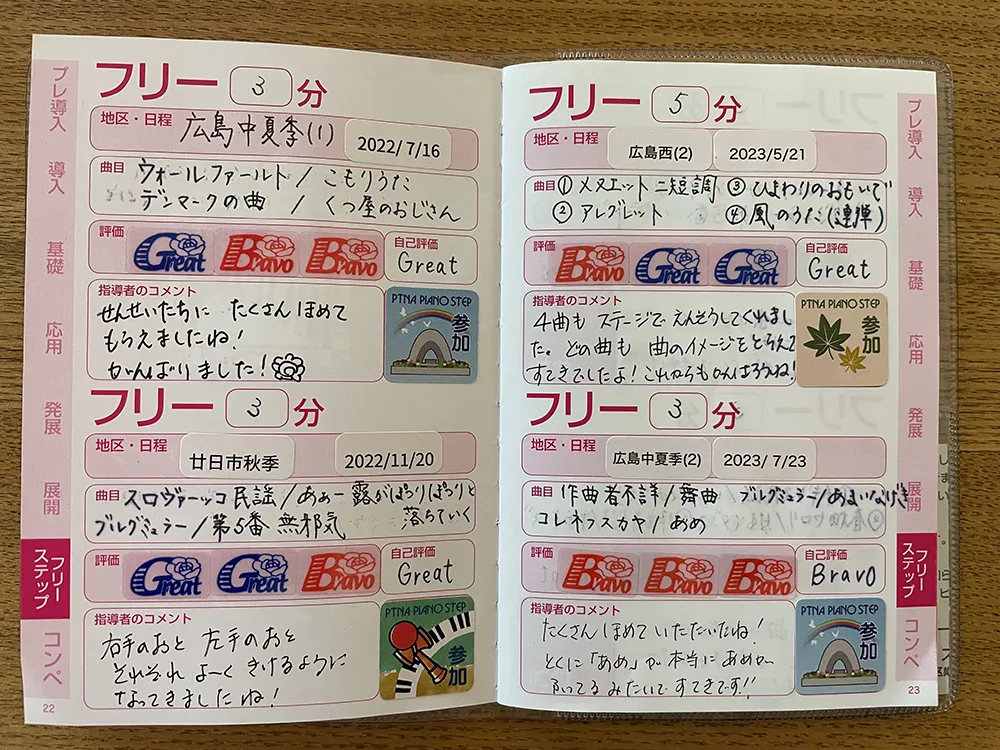 プレ導入
導入
基礎
応用
発展
展開
フリーステップ
コンペ
フリー 3 分
地区・日程 広島中夏季(1) 2022/7/16
曲目 ウォールファールト / こもりうた
デンマークの曲 / くつ屋のおじさん
評価 Great Bravo Bravo 自己評価 Great
指導者のコメント
せんせいたちに たくさん ほめて
もらえましたね!
がんばりました!
PTNA PIANO STEP 参加
フリー 3 分
地区・日程 廿日市秋季 2022/11/20
曲目 スロヴァーッコ民謡 / あぁー露がぽつりぽつりと
落ちていく
ブルグミュラー / 第5番 無邪気
評価 Great Great Bravo 自己評価 Great
指導者のコメント
右手のおと 左手のおと
それぞれ よーく きけるように
なってきましたね!
PTNA PIANO STEP 参加
22
フリー 5 分
地区・日程 広島西(2) 2023/5/21
曲目 ① メヌエット ニ短調 ③ ひまわりのおもいで
② アレグレット ④ 風のうた(連弾)
評価 Bravo Great Great 自己評価 Great
指導者のコメント
4曲も ステージで えんそうしてくれまし
た。どの曲も 曲のイメージをとらえて
すてきでしたよ! これからもがんばろうね!
PTNA PIANO STEP 参加
フリー 3 分
地区・日程 広島中夏季(2) 2023/ 7/23
曲目 作曲者不詳 / 舞曲 ブルグミュラー / あまいなげき
コレネフスカヤ / あめ
評価 Bravo Bravo Bravo 自己評価 Bravo
指導者のコメント
たくさん ほめて いただいたね!
とくに「あめ」が 本当に あめが
ふってる みたいで すてきです!!
PTNA PIANO STEP 参加
23
プレ導入
導入
基礎
応用
発展
展開
フリーステップ
コンペ